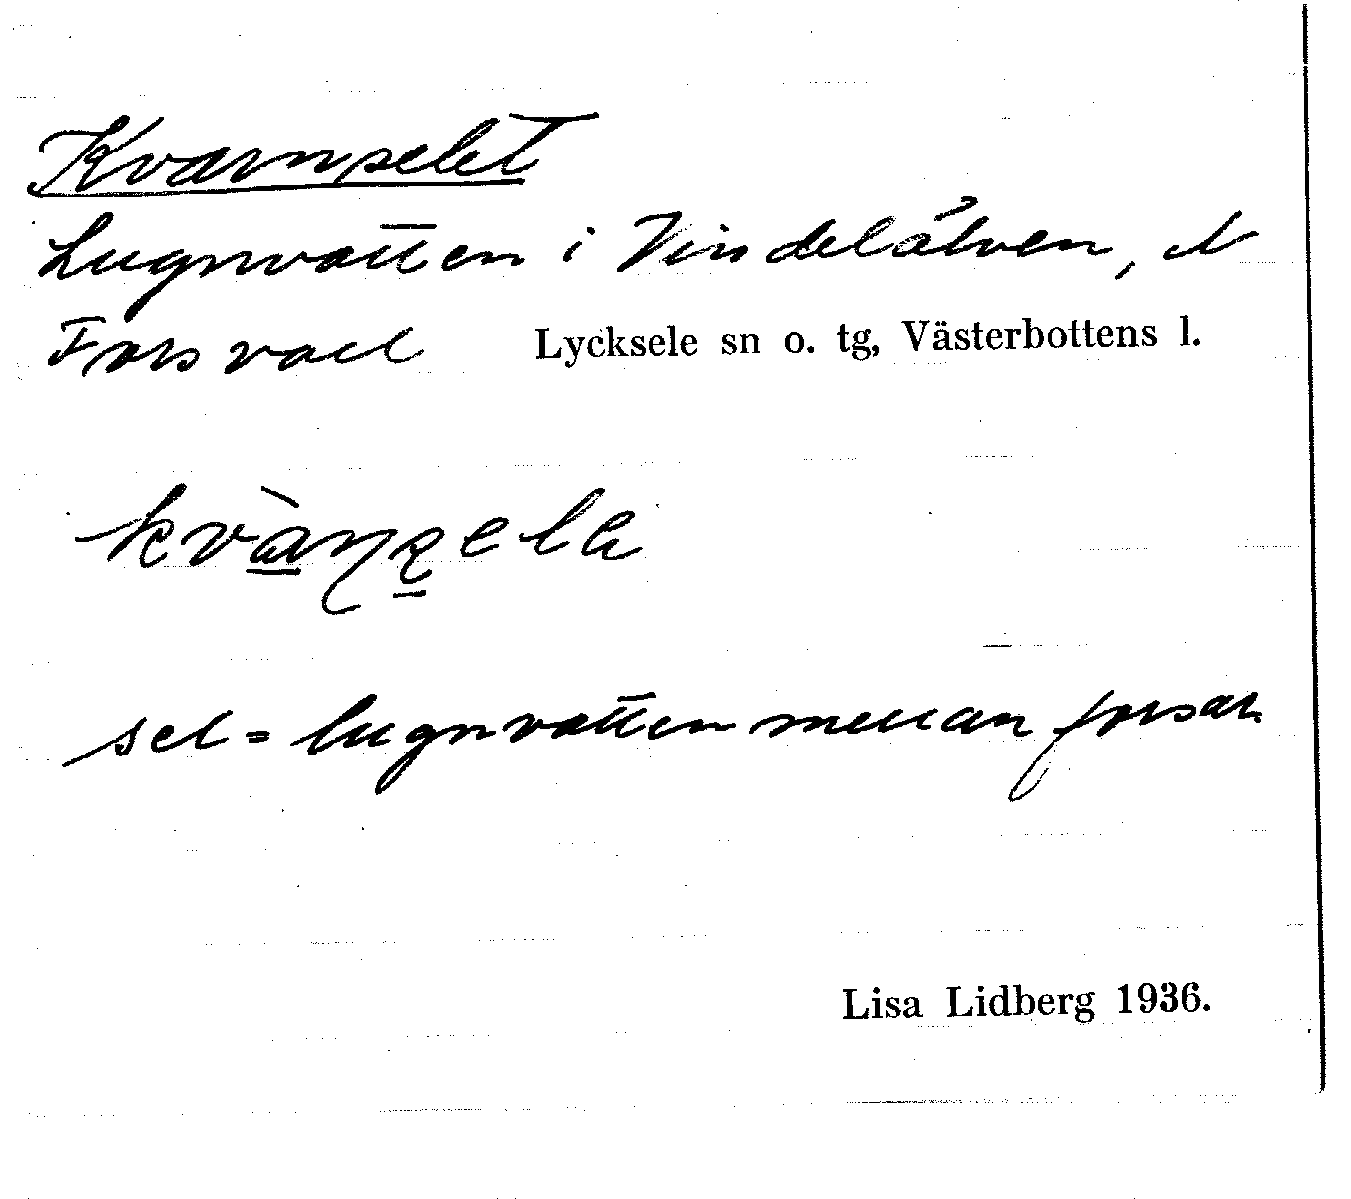 Kvarnselet
Lugnvatten i Vindelälven, N
Forsvall Lycksele sn o. tg, Västerbottens l.
sel = lugnvatten mellan forsar.
Lisa Lidberg 1936.